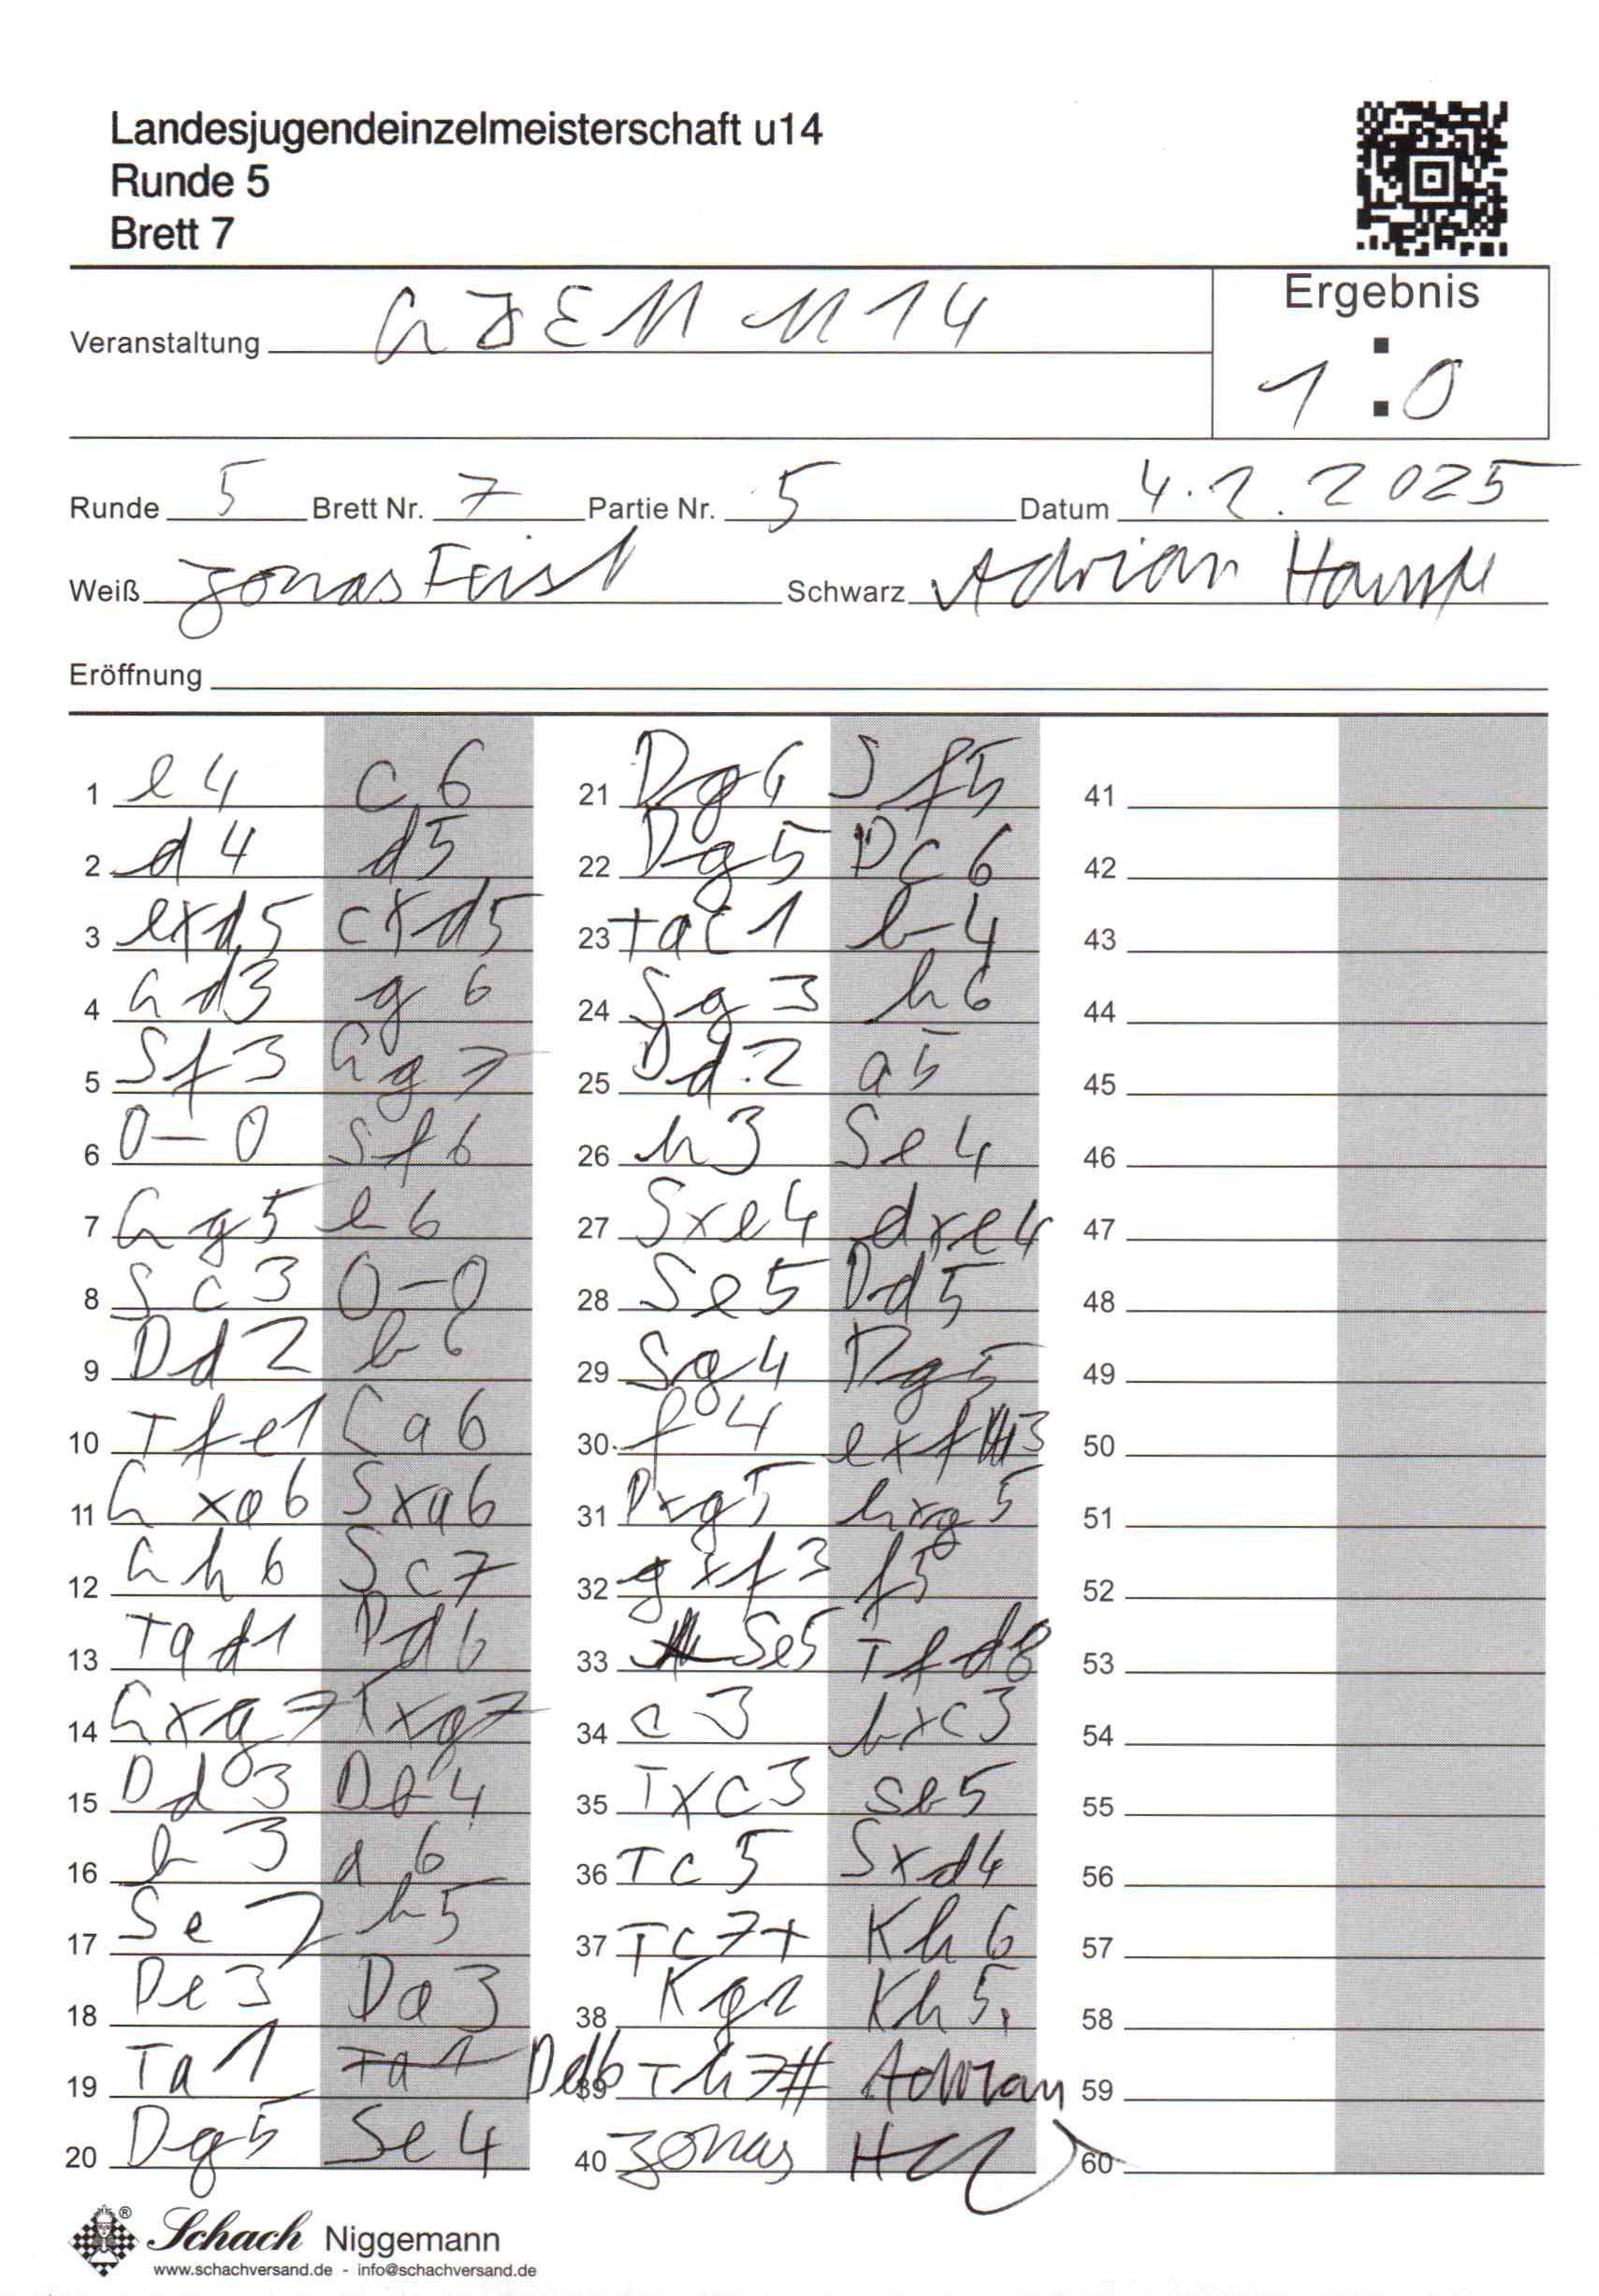 Landesjugendeinzelmeisterschaft u14
Runde 5
Brett 7
Veranstaltung LJEM U14
Ergebnis
1 : 0
Runde 5 Brett Nr. 7 Partie Nr. 5 Datum 4.2.2025
Weiß Jonas Feist Schwarz Adrian
Eröffnung
1 e4 c6
2 d4 d5
3 exd5 cxd5
4 Ld3 g6
5 Sf3 Lg7
6 0-0 Sf6
7 Lg5 e6
8 Sc3 0-0
9 Dd2 b6
10 Tfe1 La6
11 Lxa6 Sxa6
12 Lh6 Sc7
13 Tad1 Dd6
14 Lxg7 Kxg7
15 Dd3 Db4
16 b3 a6
17 Se2 b5
18 De3 Da3
19 Ta1 Ta1 Dd6
20 Dg5 Se4
21 Dg4 Sf5
22 Dg5 Dc6
23 Tac1 b4
24 Sg3 h6
25 Dd2 a5
26 h3 Se4
27 Sxe4 dxe4
28 Se5 Dd5
29 Sg4 Dg5
30 f4 exf3
31 Dxg5 hxg5
32 gxf3 f5
33 Se5 Tfd8
34 c3 bxc3
35 Txc3 Sb5
36 Tc5 Sxd4
37 Tc7+ Kh6
38 Kg2 Kh5
39 Th7# Adrian
40 Jonas
41
42
43
44
45
46
47
48
49
50
51
52
53
54
55
56
57
58
59
60
Schach Niggemann
www.schachversand.de - info@schachversand.de